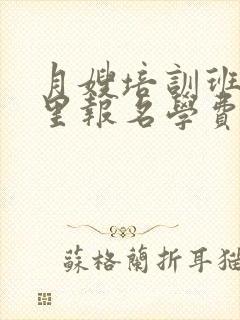 月嫂培訓班
里報名學費
蘇格蘭折耳猫